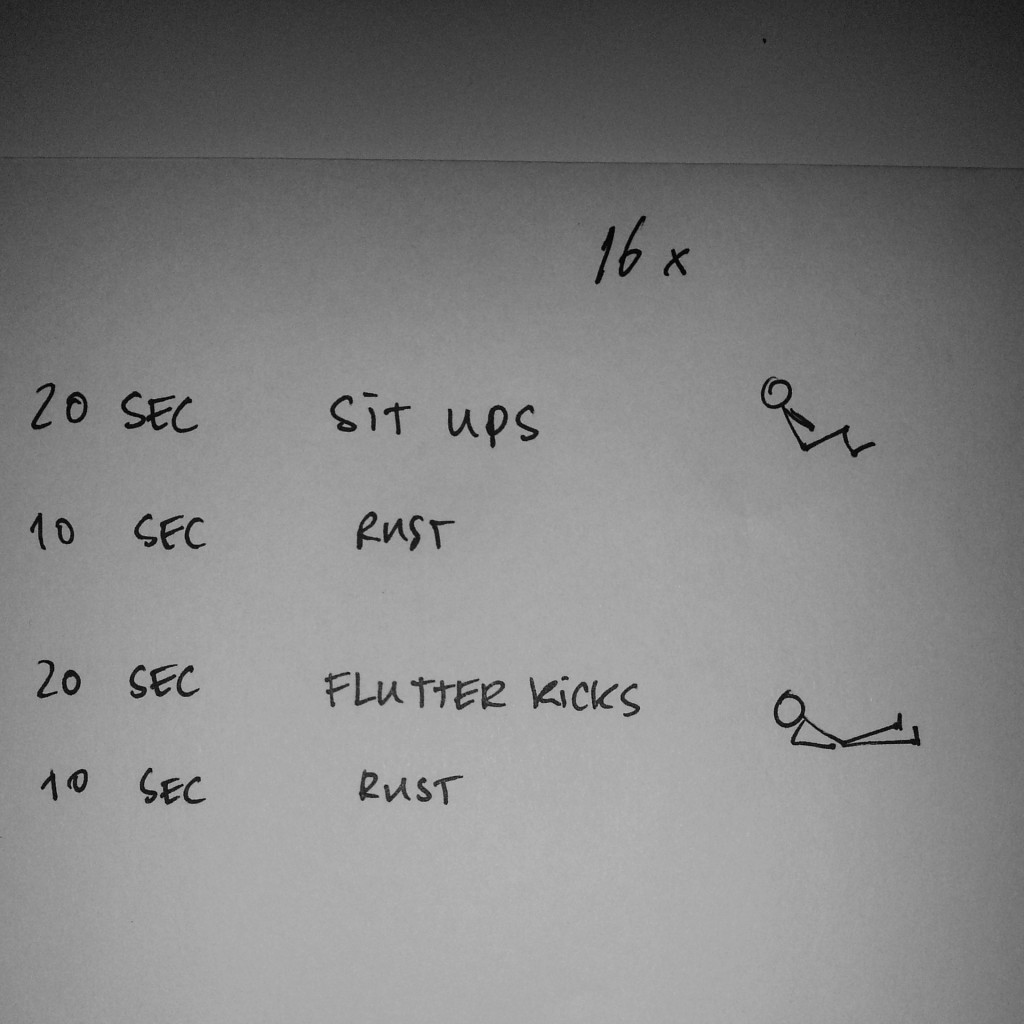 16 x
20 SEC SiT UPS
10 SEC RUST
20 SEC FLUTTER KiCKS
10 SEC RUST